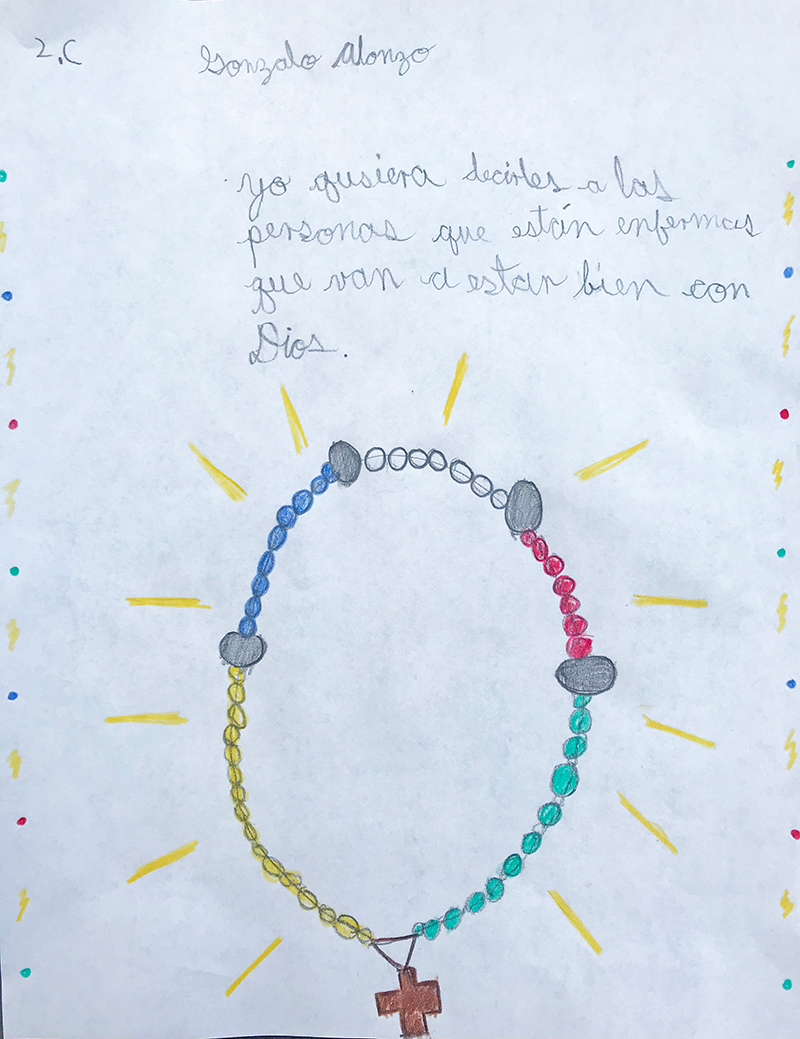 2.C
Gonzalo Alonzo
yo qusiera decirles a las
personas que están enfermas
que van a estar bien con
Dios.